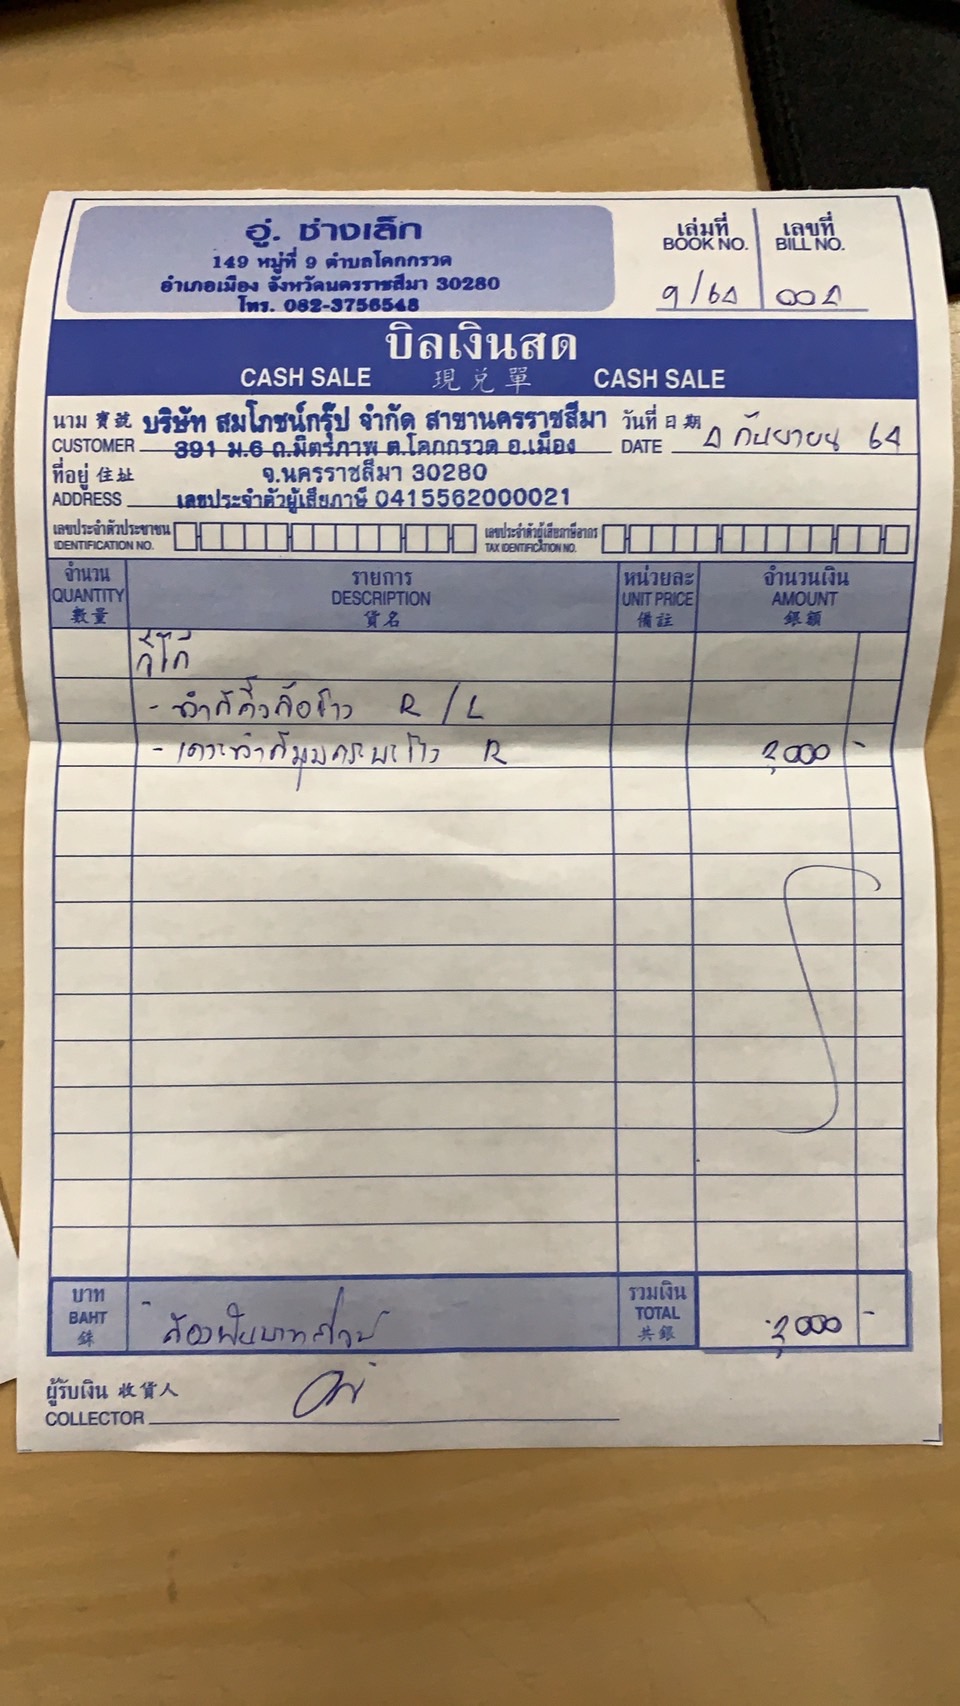 อู่. ช่างเล็ก
149 หมู่ที่ 9 ตำบลโคกกรวด
อำเภอเมือง จังหวัดนครราชสีมา 30280
โทร. 082-3756548
เล่มที่ เลขที่
BOOK NO. BILL NO.
9/64 004
บิลเงินสด
CASH SALE 現兑單 CASH SALE
นาม 寳號 บริษัท สมโภชน์กรุ๊ป จำกัด สาขานครราชสีมา วันที่ 日期
CUSTOMER 391 ม.6 ถ.มิตรภาพ ต.โคกกรวด อ.เมือง DATE 4 กันยายน 64
ที่อยู่ 住址 จ.นครราชสีมา 30280
ADDRESS เลขประจำตัวผู้เสียภาษี 0415562000021
เลขประจำตัวประชาชน เลขประจำตัวผู้เสียภาษีอากร
IDENTIFICATION NO. TAX IDENTIFICATION NO.
จำนวน รายการ หน่วยละ จำนวนเงิน
QUANTITY DESCRIPTION UNIT PRICE AMOUNT
數量 貨名 備註 銀額
- ทำสีคิ้วล้อ R / L
- เคาะทำสีมุม R 2,000 -
บาท รวมเงิน
BAHT สองพันบาทถ้วน TOTAL 2,000 -
銖 共銀
ผู้รับเงิน 收貨人
COLLECTOR